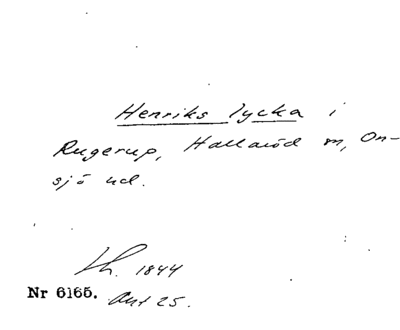 Henriks lycka i
Rugerup, Hallaröd sn, On-
sjö hd.
Lh. 1844
Nr 6165. Akt 25.